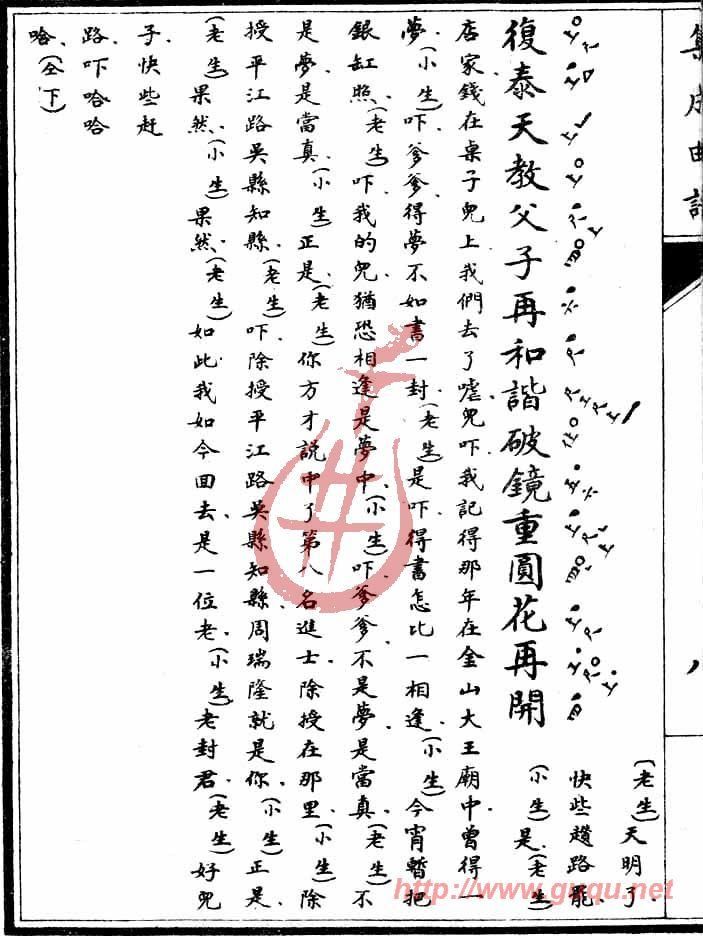 集成曲譜
復泰天教父子再和諧破鏡重圓花再開
(老生)天明了
快些趲路罷
(小生)是(老生)
店家錢在桌子兒上我們去了嗄兒吓我記得那年在金山大王廟中曾得一
夢(小生)吓爹爹得夢不如書一封(老生)是吓得書怎比一相逢(小生)今宵暫把
銀缸照(老生)吓我的兒猶恐相逢是夢中(小生)吓爹爹不是夢是當真(老生)不
是夢是當真(小生)正是(老生)你方才說中了第八名進士除授在那里(小生)除
授平江路吳縣知縣(老生)吓除授平江路吳縣知縣周瑞隆就是你(小生)正是
(老生)果然(小生)果然(老生)如此我如今回去是一位老(小生)老封君(老生)好兒
子快些赶
路吓哈哈
哈(仝下)
http://www.guqu.net